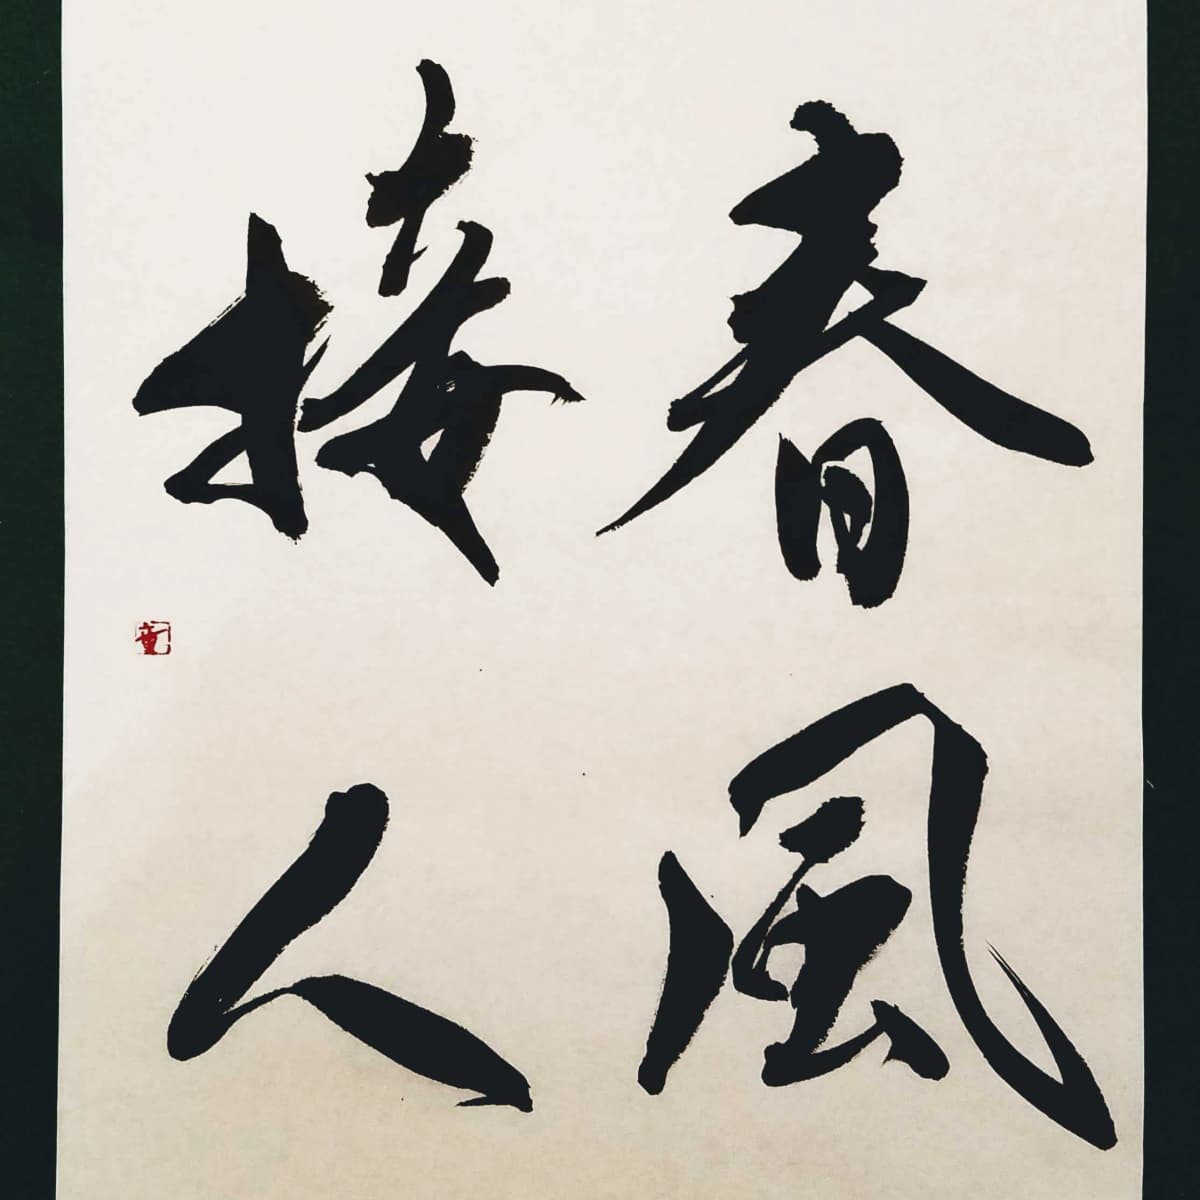 春風
接人
童